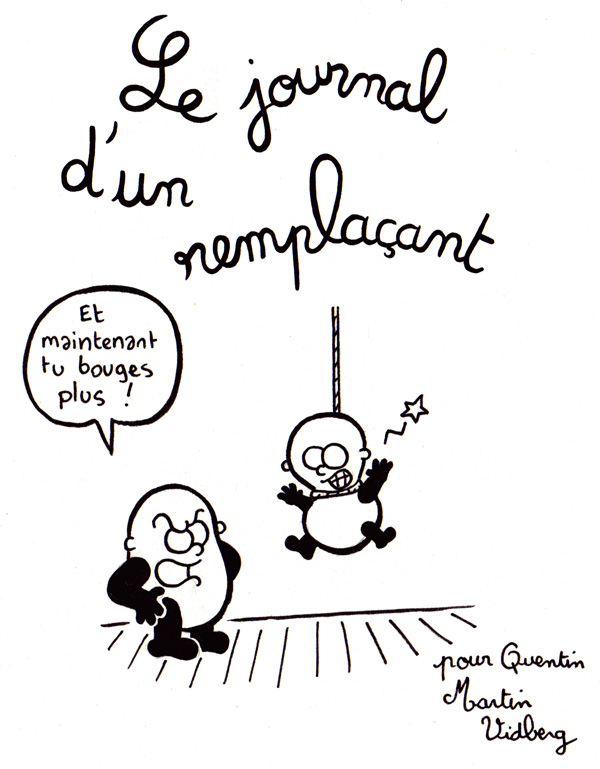 Le journal
d'un
remplaçant
Et
maintenant
tu bouges
plus !
pour Quentin
Martin
Vidberg